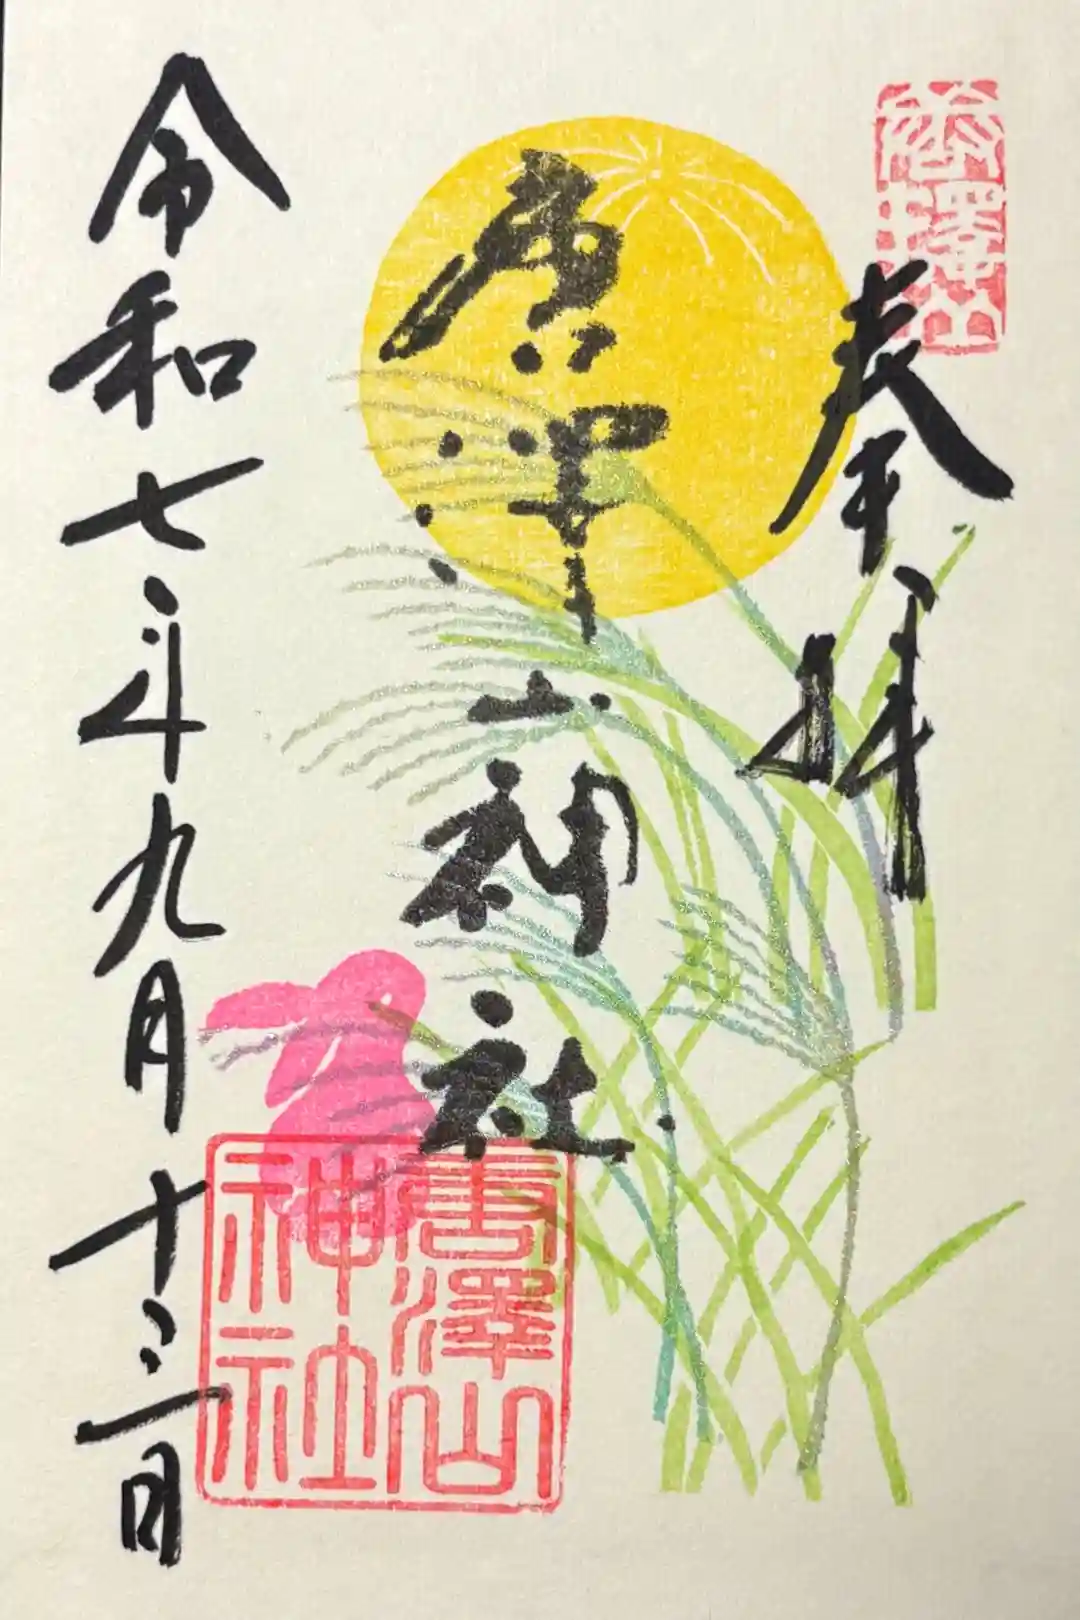 奉拝
唐澤山神社
令和七年九月十三日
唐澤山
神社